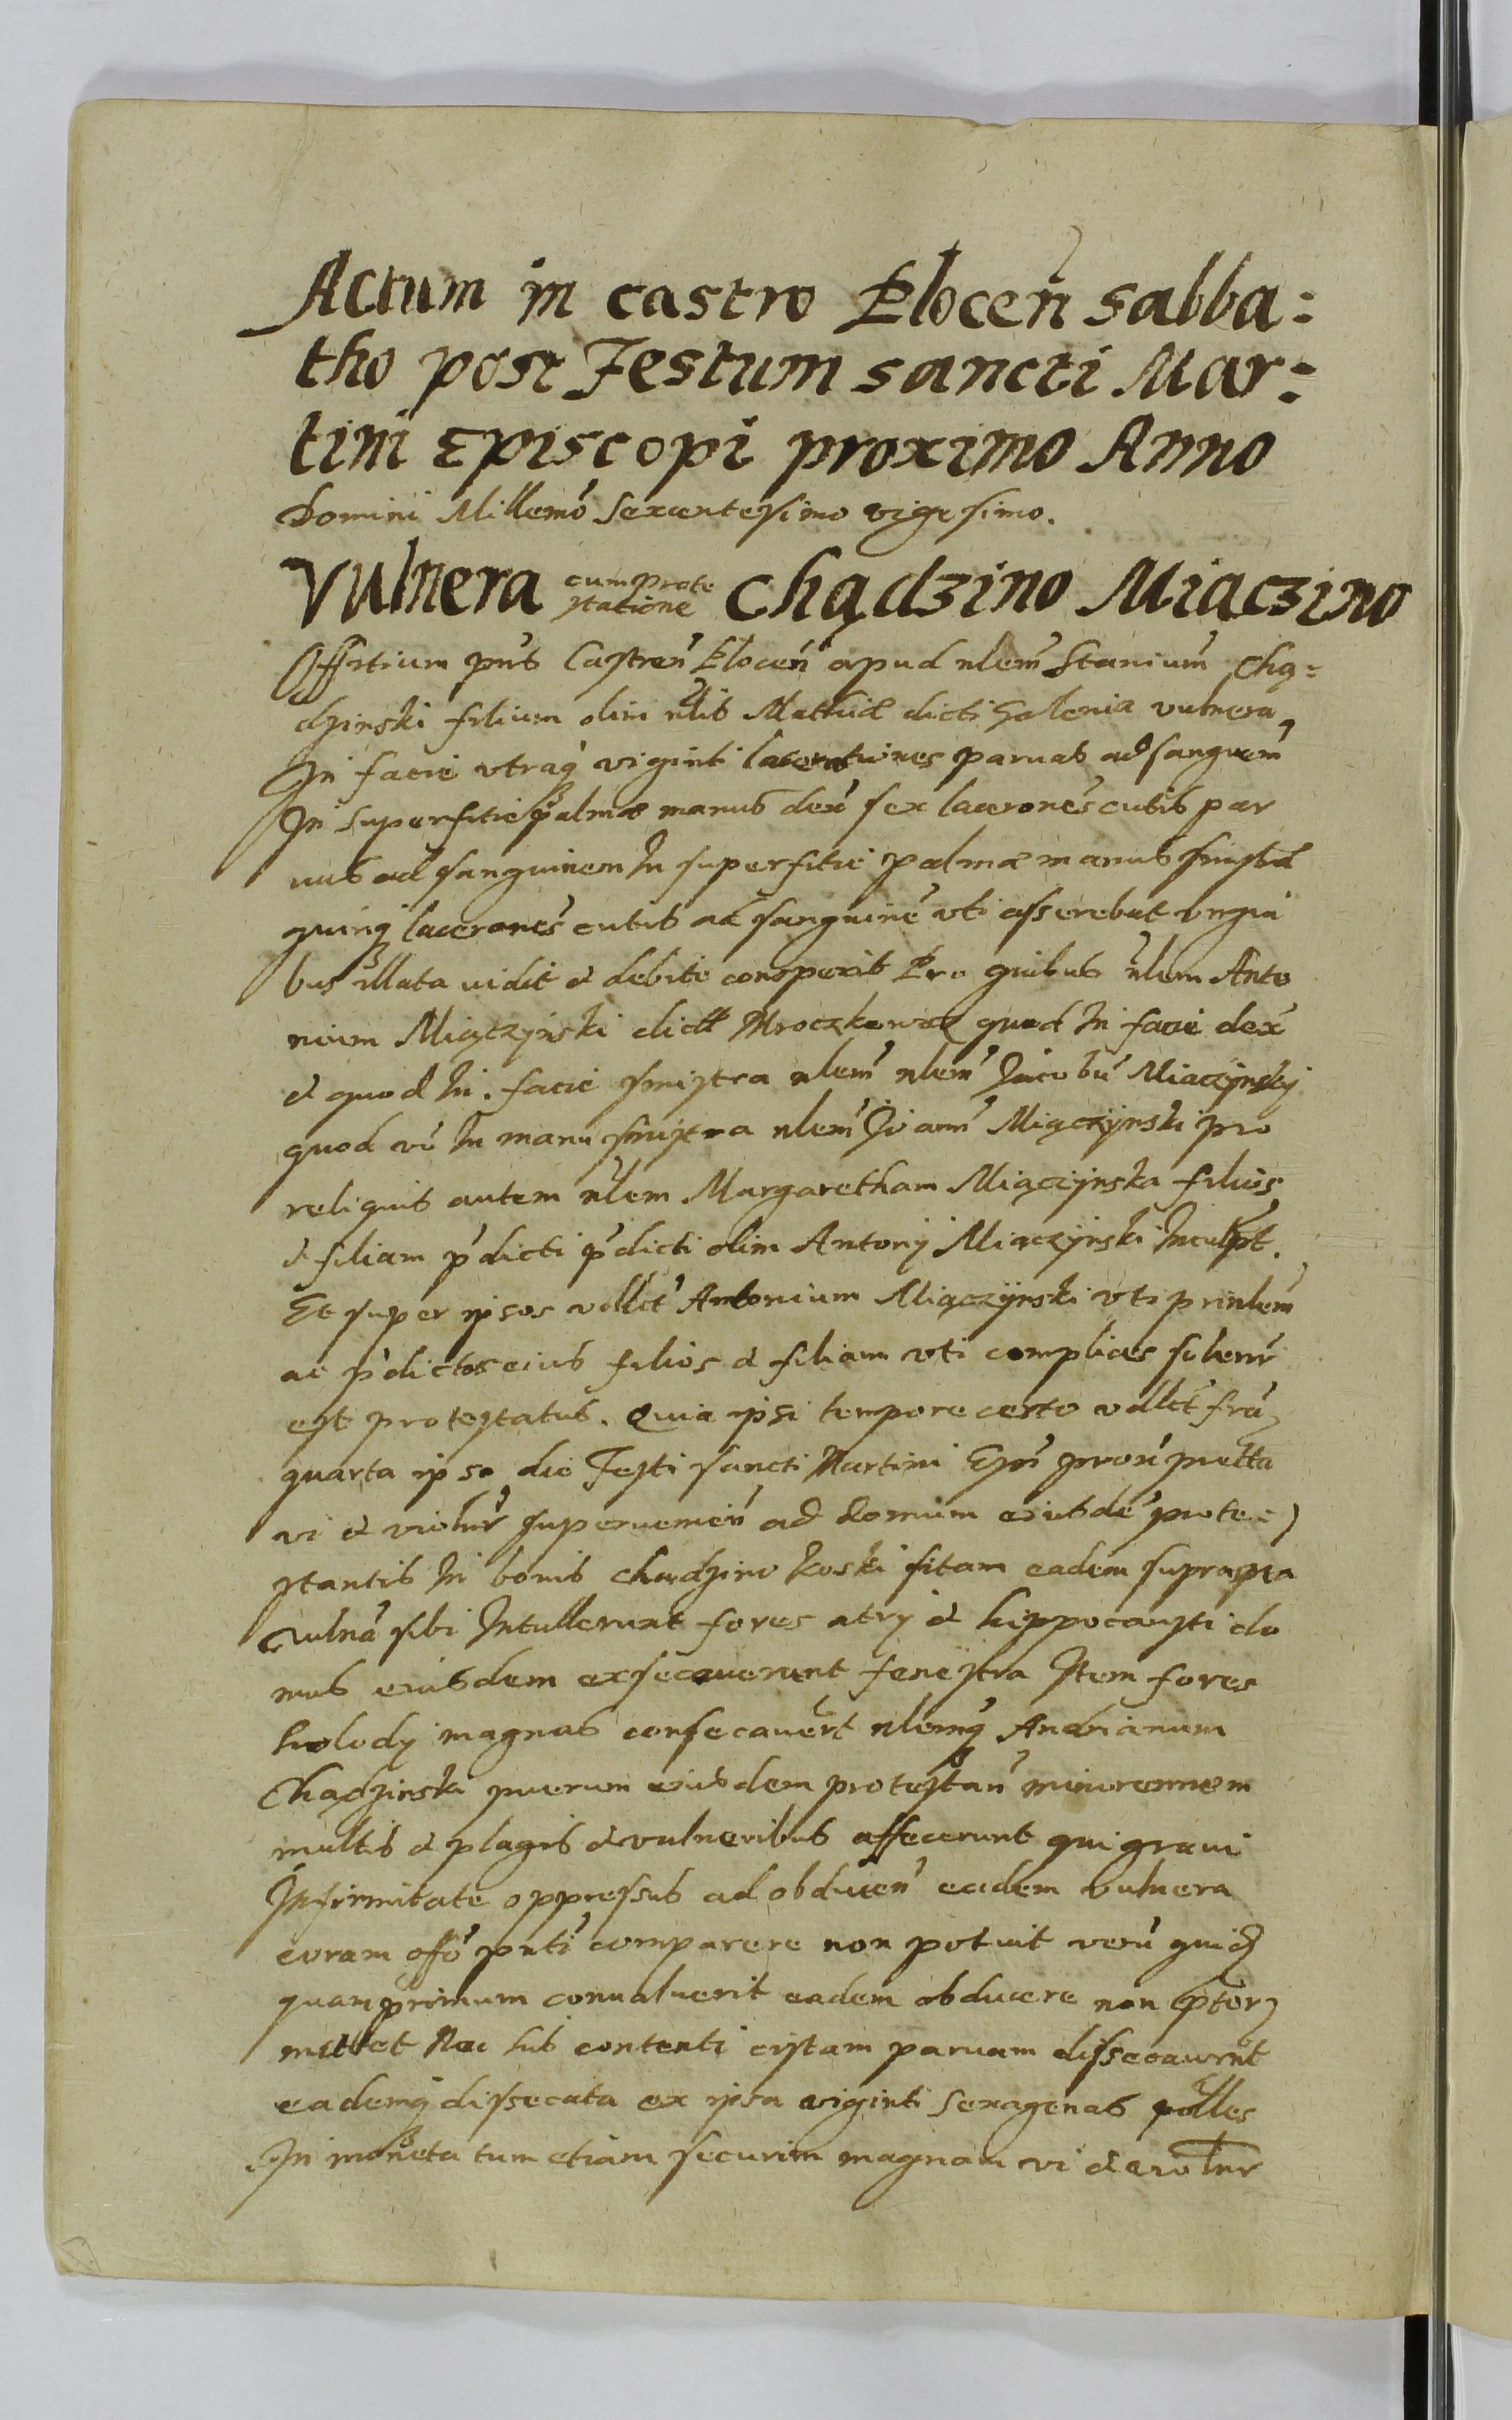 Actum in castro Plocen̄ sabba:
tho post Festum sancti Mar:
tini Episcopi proximo Anno
Domini Millemo Sexcentesimo vigesimo.
Vulnera cum prote
statione Chądzino Miączino
Offitium pns Castren Plocen apud nlem Stanium Chą=
dzinski filium olim nlis Mathiæ dicti Galenia vulnera
In facie vtraq viginti lacerationes paruas ad sanguem
In superfitie palmæ manus dex sex lacerones cutis par
uas ad sanguinem In superfitie palmæ manus sinistræ
quinq lacerones cutis ad sanguine vti asserebat vngui
bus illata vidit et debite conspexit Pro quibus nlem Anto
nium Miączÿnski dict Mroczkowicz quod In facie dex
et quod In. facie sinistra nlem nlem Jacobu Miaczÿnskj
quod vo In manu sinistra nlem Joann Miączÿnski pro
reliquis autem nlem Margaretham Miączÿnska filios
et filiam pdicti pdicti olim Antonij Miączÿnski Inculpt.
Et super ipsos vdlct Antonium Miączÿnski vti prinlem
ac pdictos eius filios et filiam vti complices solenr
est protestatus. Quia ipsi tempore certo vdlct fra
quarta ipso die Festi sancti Martini Epi pron putta
vi et violnr superuenien ad domum eiusde prote=
stantis In bonis Chądzino Koski sitam eadem suprapta
vulna sibi Intullerunt fores atrij et hippocausti do
mus eiusdem exsecauerunt fenestra Item fores
Stolody magnas consecauert nlemq Andrianum
Chądzinski puerum eiusdem protestan minorennem
multis et plagis et vulneribus affecerunt qui graui
Infirmitate oppressus ad obducen eadem vulnera
coram offo pnti comparere non potuit veru quid
quamprimum conualuerit eadem obducere non pter
mittet Nec his contenti cistam paruam dissecauernt
eademq dissecata ex ipsa viginti sexagenas polles
In moneta tum etiam securim magnam vi et violnr